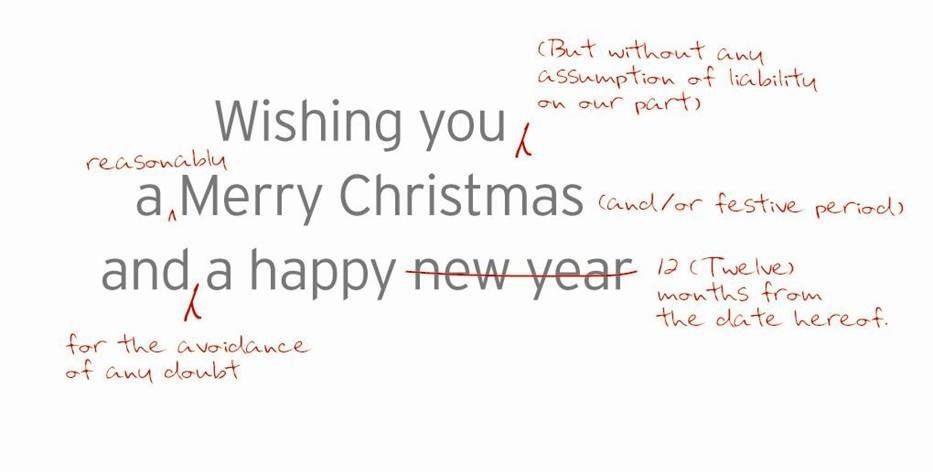 (But without any
assumption of liability
on our part)
Wishing you
reasonably
a Merry Christmas (and/or festive period)
and a happy new year 12 (Twelve)
months from
the date hereof.
for the avoidance
of any doubt